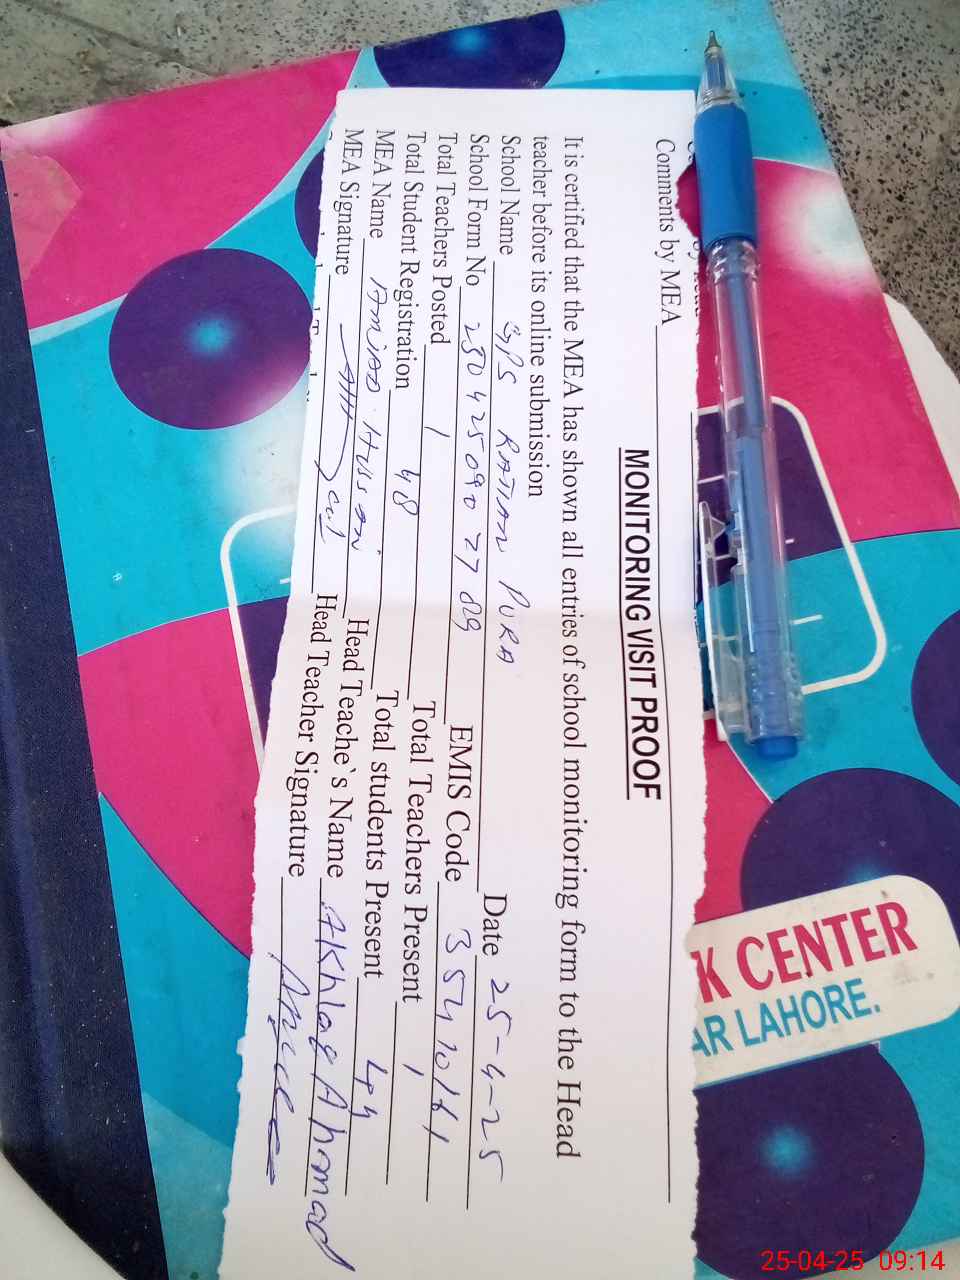 Comments by MEA
MONITORING VISIT PROOF
It is certified that the MEA has shown all entries of school monitoring form to the Head
teacher before its online submission
School Name GPS RATTAN PURA Date 25-4-25
School Form No 25042509077829 EMIS Code 35410161
Total Teachers Posted 1 Total Teachers Present 1
Total Student Registration 48 Total students Present 44
MEA Name AMJAD HUSSAIN Head Teache`s Name Akhlaq Ahmad
MEA Signature Head Teacher Signature
K CENTER
AR LAHORE.
25-04-25 09:14